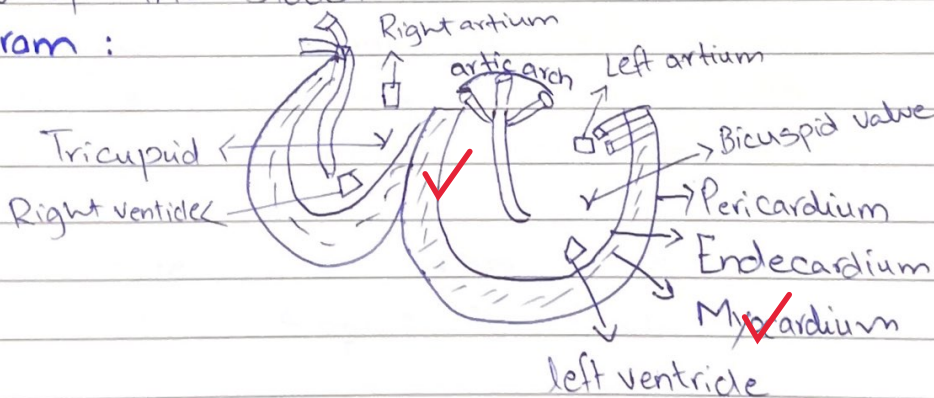 ram :
Right artium
artic arch
Left artium
Tricupuid
Bicuspid valve
Right venticle
Pericardium
Endecardium
Myocardium
left ventricle